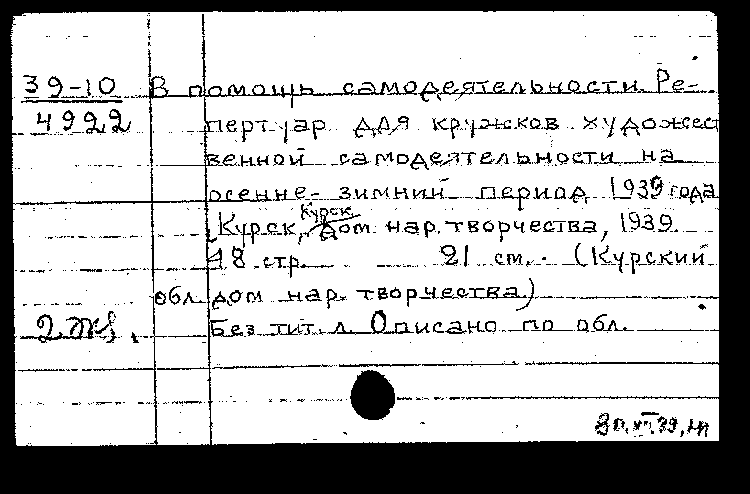 39-10 В помощь самодеятельности. Ре-
4922 пертуар для кружков художест
венной самодеятельности на
осенне-зимний период 1939 года
[Курск, Курск. дом нар. творчества, 1939.
18 стр. 21 см. (Курский
обл. дом нар. творчества)
2 экз. Без тит. л. Описано по обл.